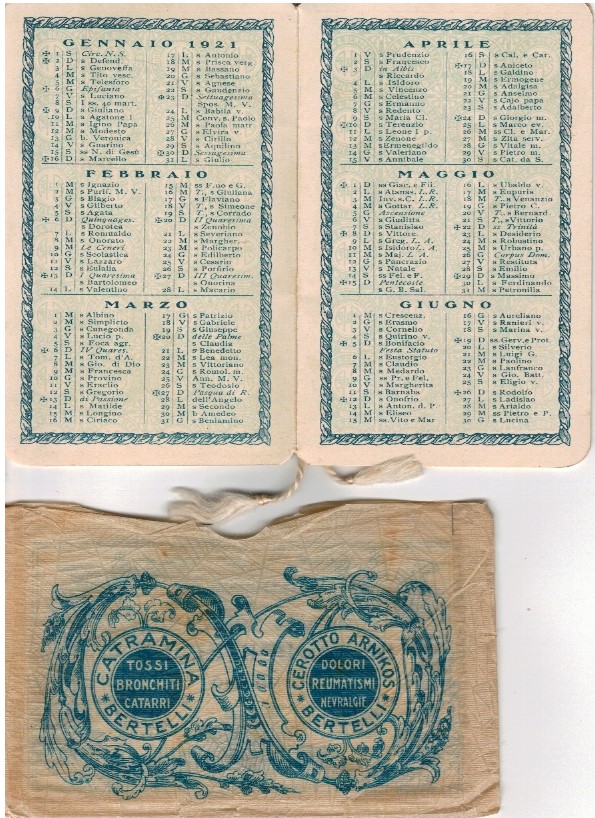 GENNAIO 1921
✠ 1 S Circ. N. S.
✠ 2 D s Defend.
3 L s Genoveffa
4 M s Tito vesc.
5 M s Telesforo
✠ 6 G Epifania
7 V s Luciano
8 S I ss. 40 mart.
✠ 9 D s Giuliano
10 L s Agatone I
11 M s Igino Papa
12 M s Modesto
13 G b. Veronica
14 V s Guarino
15 S ss N. di Gesù
✠ 16 D s Marcello
17 L s Antonio
18 M s Prisca verg
19 M s Bassano
20 G s Sebastiano
21 V s Agnese
22 S s Gaudenzio
✠ 23 D Settuagesima
Spos. M. V.
24 L s Babila v.
25 M Conv. s. Paolo
26 M s Paola mart
27 G s Elvira v
28 V s Cirillo
29 S s Aquilino
✠ 30 D Sessagesima
31 L s Giulio
FEBBRAIO
1 M s Ignazio
2 M s Purif. M. V.
3 G s Biagio
4 V s Gilberto
5 S s Agata
✠ 6 D Quinquages.
s Dorotea
7 L s Romualdo
8 M s Onorato
9 M Le Ceneri
10 G s Scolastica
11 V s Lazzaro
12 S s Eulalia
✠ 13 D I Quaresima
s Bartolomeo
14 L s Valentino
15 M ss F.uo e G.
16 M T., s Giuliana
17 G s Flaviano
18 V T., s Simeone
19 S T., s Corrado
✠ 20 D II Quaresima
s Zenobio
21 L s Severiano
22 M s Margher.
23 M s Policarpo
24 G s Edilberto
25 V s Cesario
26 S s Porfirio
✠ 27 D III Quaresim.
s Onorina
28 L s Macario
MARZO
1 M s Albino
2 M s Simplicio
3 G s Cunegonda
4 V s Lucio p.
5 S s Foca agr.
✠ 6 D IV Quares.
7 L s Tom. d'A.
8 M s Gio. di Dio
9 M s Francesca
10 G s Provino
11 V s Eraclio
12 S s Gregorio
✠ 13 D di Passione
14 L s Matilde
15 M s Longino
16 M s Ciriaco
17 G s Patrizio
18 V s Gabriele
19 S s Giuseppe
✠ 20 D delle Palme
s Claudia
21 L s Benedetto
22 M s Lea mon.
23 M s Vittoriano
24 G s Romol. m
25 V Ann. M. V.
26 S s Teodosio
✠ 27 D Pasqua di R.
28 L dell'Angelo
29 M s Secondo
30 M b Amedeo
31 G s Beniamino
APRILE
1 V s Prudenzio
2 S s Francesco
✠ 3 D in Albis
s Riccardo
4 L s Isidoro
5 M s Vincenzo
6 M s Celestino
7 G s Ermanno
8 V s Redento
9 S s Maria Cl.
✠ 10 D s Terenzio
11 L s Leone I p.
12 M s Zenone
13 M s Ermenegildo
14 M s Valeriano
15 V s Annibale
16 S s Cal. e Car.
✠ 17 D s Aniceto
18 L s Galdino
19 M s Ermogene
20 M s Adalgisa
21 G s Anselmo
22 V s Cajo papa
23 S s Adalberto
✠ 24 D s Giorgio m.
25 L s Marco ev.
26 M ss Cl. e Mar.
27 M s Zita serv.
28 G s Vitale m.
29 V s Pietro m.
30 S s Cat. da S.
MAGGIO
✠ 1 D ss Giac. e Fil.
2 L s Atanas. L.R.
3 M Inv. s. C. L.R.
4 M s Gottar. L.R.
5 G Ascensione
6 V s Giuditta
7 S s Stanislao
✠ 8 D s Vittore.
9 L s Greg. L. A.
10 M s Isidoro L. A.
11 M s Maj. L. A.
12 G s Pancrazio
13 V s Natale
14 S ss Fel. e F.
✠ 15 D Pentecoste
s G. B. Sal.
16 L s Ubaldo v.
17 M s Eupuria
18 M T., s Venanzio
19 G s Pietro C.
20 V T., s Bernard.
21 S T., s Vittorio
✠ 22 D ss Trinità
23 L s Desiderio
24 M s Robustino
25 M s Urbano p.
26 G Corpus Dom.
27 V s Restituta
28 S s Emilio
✠ 29 D s Massimo
30 L s Ferdinando
31 M s Petronilla
GIUGNO
1 M s Crescenz.
2 G s Erasmo
3 V s Cornelio
4 S s Quirino v.
✠ 5 D s Bonifacio
Festa Statuto
6 L s Eustorgio
7 M s Claudio
8 M s Medardo
9 G ss Pr. e Fel.
10 V s Margherita
11 S s Barnaba
✠ 12 D s Onofrio
13 L s Anton. d. P
14 M s Eliseo
15 M ss. Vito e Mar
16 G s Aureliano
17 V s Ranieri v.
18 S s Marina v.
✠ 19 D ss Gerv. e Prot.
20 L s Silverio
21 M s Luigi G.
22 M s Paolino
23 G s Lanfranco
24 V s Gio. Batt.
25 S s Eligio v.
✠ 26 D s Rodolfo
27 L s Ladislao
28 M s Attaldo
29 M ss Pietro e P.
30 G s Lucina
CATRAMINA
TOSSI
BRONCHITI
CATARRI
BERTELLI
CEROTTO ARNIKOS
DOLORI
REUMATISMI
NEVRALGIE
BERTELLI